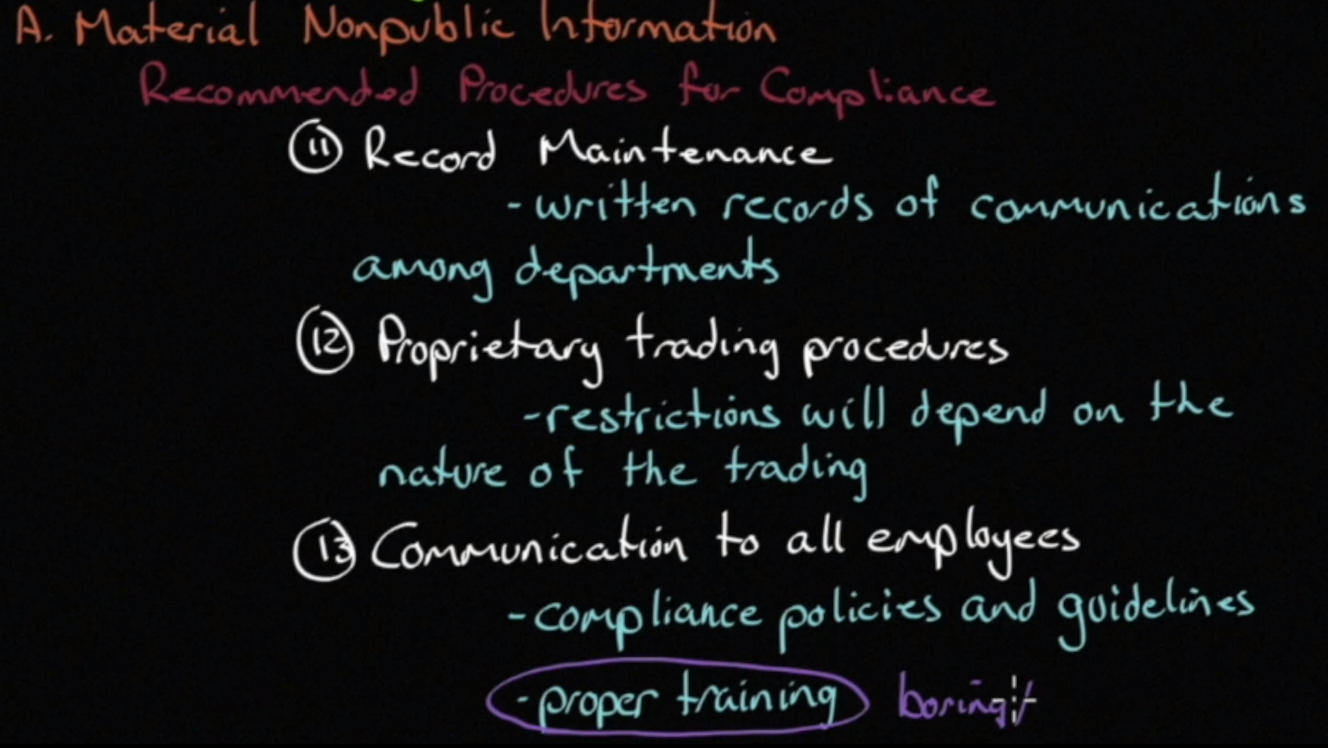 A. Material Nonpublic Information
Recommended Procedures for Compliance
11 Record Maintenance
- written records of communications
among departments
12 Proprietary trading procedures
- restrictions will depend on the
nature of the trading
13 Communication to all employees
- compliance policies and guidelines
- proper training boring!